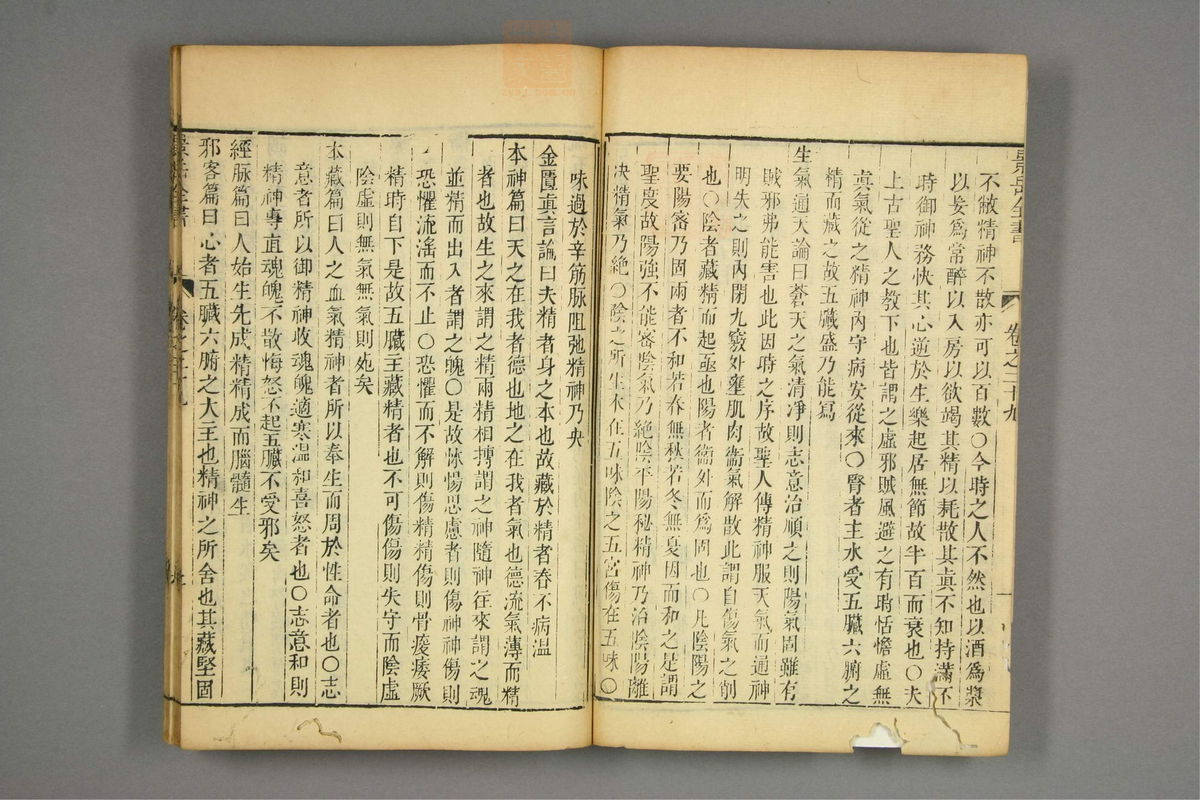 景岳全書
卷之二十九
不敝精神不散亦可以百數○今時之人不然也以酒爲漿
以妄爲常醉以入房以欲竭其精以耗散其眞不知持滿不
時御神務快其心逆於生樂起居無節故半百而衰也○夫
上古聖人之教下也皆謂之虛邪賊風避之有時恬憺虛無
眞氣從之精神內守病安從來○腎者主水受五臟六腑之
精而藏之故五臟盛乃能寫
生氣通天論曰蒼天之氣清凈則志意治順之則陽氣固雖有
賊邪弗能害也此因時之序故聖人傳精神服天氣而通神
明失之則內閉九竅外壅肌肉衞氣解散此謂自傷氣之削
也○陰者藏精而起亟也陽者衞外而爲固也○凡陰陽之
要陽密乃固兩者不和若春無秋若冬無夏因而和之是謂
聖度故陽強不能密陰氣乃絶陰平陽秘精神乃治陰陽離
决精氣乃絶○陰之所生本在五味陰之五宮傷在五味○
味過於辛筋脉阻弛精神乃央
金匱眞言論曰夫精者身之本也故藏於精者春不病溫
本神篇曰天之在我者德也地之在我者氣也德流氣薄而
生
者也故生之來謂之精兩精相摶謂之神隨神往來謂之魂
並精而出入者謂之魄○是故怵惕思慮者則傷神神傷則
恐懼流滛而不止○恐懼而不解則傷精精傷則骨痠痿厥
精時自下是故五臟主藏精者也不可傷傷則失守而陰虛
陰虛則無氣無氣則死矣
本藏篇曰人之血氣精神者所以奉生而周於性命者也○志
意者所以御精神收魂魄適寒溫和喜怒者也○志意和則
精神專直魂魄不散悔怒不起五臟不受邪矣
經脉篇曰人始生先成精精成而腦髓生
邪客篇曰心者五臟六腑之大主也精神之所舍也其藏堅固
景岳全書
卷之二十九